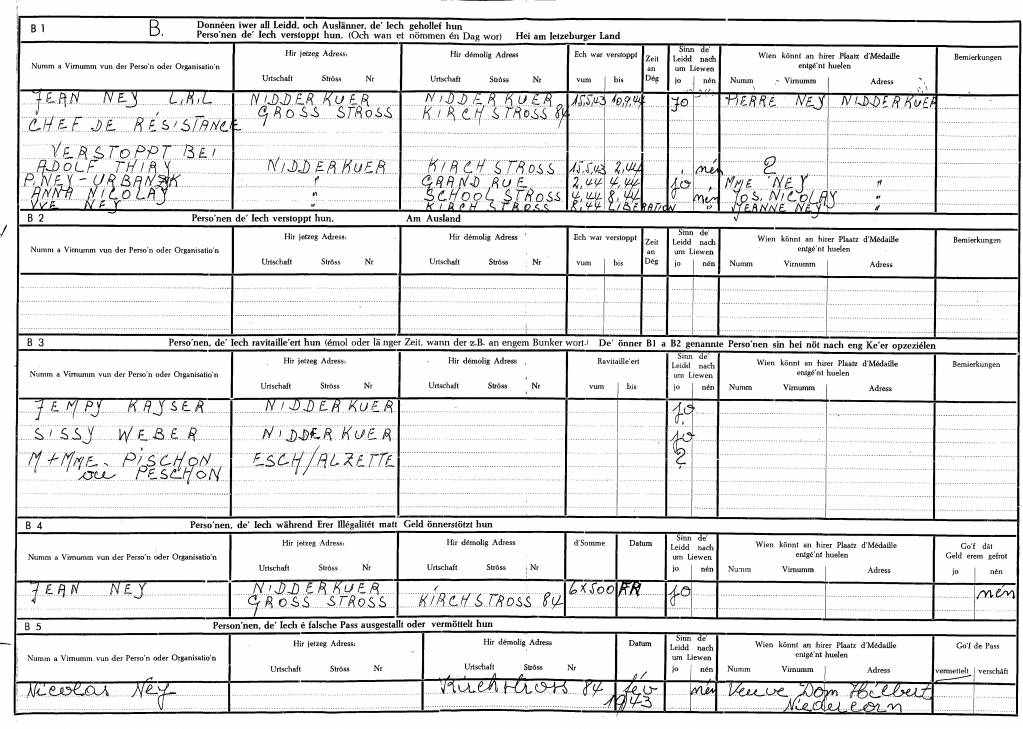 B 1 B. Donnéen iwer all Leidd, och Auslänner, de' Iech gehollef hun
Perso'nen de' Iech verstoppt hun. (Och wan et nömmen én Dag wor) Hei am letzeburger Land
Numm a Virnumm vun der Perso'n oder Organisatio'n Hir jetzeg Adress: Hir démolig Adress: Ech war verstoppt Zeit an Dég Sinn de' Leidd nach um Liewen Wien könnt an hirer Plaatz d'Médaille entgé'nt huelen Bemierkungen
Urtschaft Ströss Nr Urtschaft Ströss Nr vum bis jo nén Numm Virnumm Adress
JEAN NEY L.R.L NIDDERKUER NIDDERKUER 15.5.43 10.9.44 jo PIERRE NEY NIDDERKUER
GROSS STROSS KIRCHSTROSS 84
CHEF DE RÉSISTANCE
VERSTOPPT BEI
ADOLF THIRY NIDDERKUER KIRCHSTROSS 15.5.43 2.44 nén ?
P. NEY-URBANZIK " GRAND RUE 2.44 4.44 jo MME NEY "
ANNA NICOLAY " SCHOOL STROSS 4.44 8.44 nén JOS. NICOLAY "
NEY " KIRCHSTROSS 8.44 LIBERATION " JEANNE NEY "
B 2 Perso'nen de' Iech verstoppt hun. Am Ausland
Numm a Virnumm vun der Perso'n oder Organisatio'n Hir jetzeg Adress: Hir démolig Adress Ech war verstoppt Zeit an Dég Sinn de' Leidd nach um Liewen Wien könnt an hirer Plaatz d'Médaille entgé'nt huelen Bemierkungen
Urtschaft Ströss Nr Urtschaft Ströss Nr vum bis jo nén Numm Virnumm Adress
B 3 Perso'nen, de' Iech ravitaille'ert hun (émol oder länger Zeit, wann der z.B. an engem Bunker wort.) De' önner B1 a B2 genannte Perso'nen sin hei nöt nach eng Ke'er opzeziélen
Numm a Virnumm vun der Perso'n oder Organisatio'n Hir jetzeg Adress: Hir démolig Adress Ravitaille'ert Sinn de' Leidd nach um Liewen Wien könnt an hirer Plaatz d'Médaille entgé'nt huelen Bemierkungen
Urtschaft Ströss Nr Urtschaft Ströss Nr vum bis jo nén Numm Virnumm Adress
JEMPY KAYSER NIDDERKUER jo
SISSY WEBER NIDDERKUER jo
M + MME. PISCHON ESCH/ALZETTE ?
ou PESCHON
B 4 Perso'nen, de' Iech während Erer Illégalitét matt Geld önnerstötzt hun
Numm a Virnumm vun der Perso'n oder Organisatio'n Hir jetzeg Adress: Hir démolig Adress d'Somme Datum Sinn de' Leidd nach um Liewen Wien könnt an hirer Plaatz d'Médaille entgé'nt huelen Go'f dât Geld erem gefrot
Urtschaft Ströss Nr Urtschaft Ströss Nr jo nén Numm Virnumm Adress jo nén
JEAN NEY NIDDERKUER 6x500 FR jo nén
GROSS STROSS KIRCHSTROSS 84
B 5 Person'nen, de' Iech é falsche Pass ausgestallt oder vermöttelt hun
Numm a Virnumm vun der Perso'n oder Organisatio'n Hir jetzeg Adress: Hir démolig Adress Datum Sinn de' Leidd nach um Liewen Wien könnt an hirer Plaatz d'Médaille entgé'nt huelen Go'f de Pass
Urtschaft Ströss Nr Urtschaft Ströss Nr jo nén Numm Virnumm Adress vermettelt verschäft
Nicolas Ney Kirchstross 84 fév nén Veuve Dom Hilbert
1943 Niedercorn